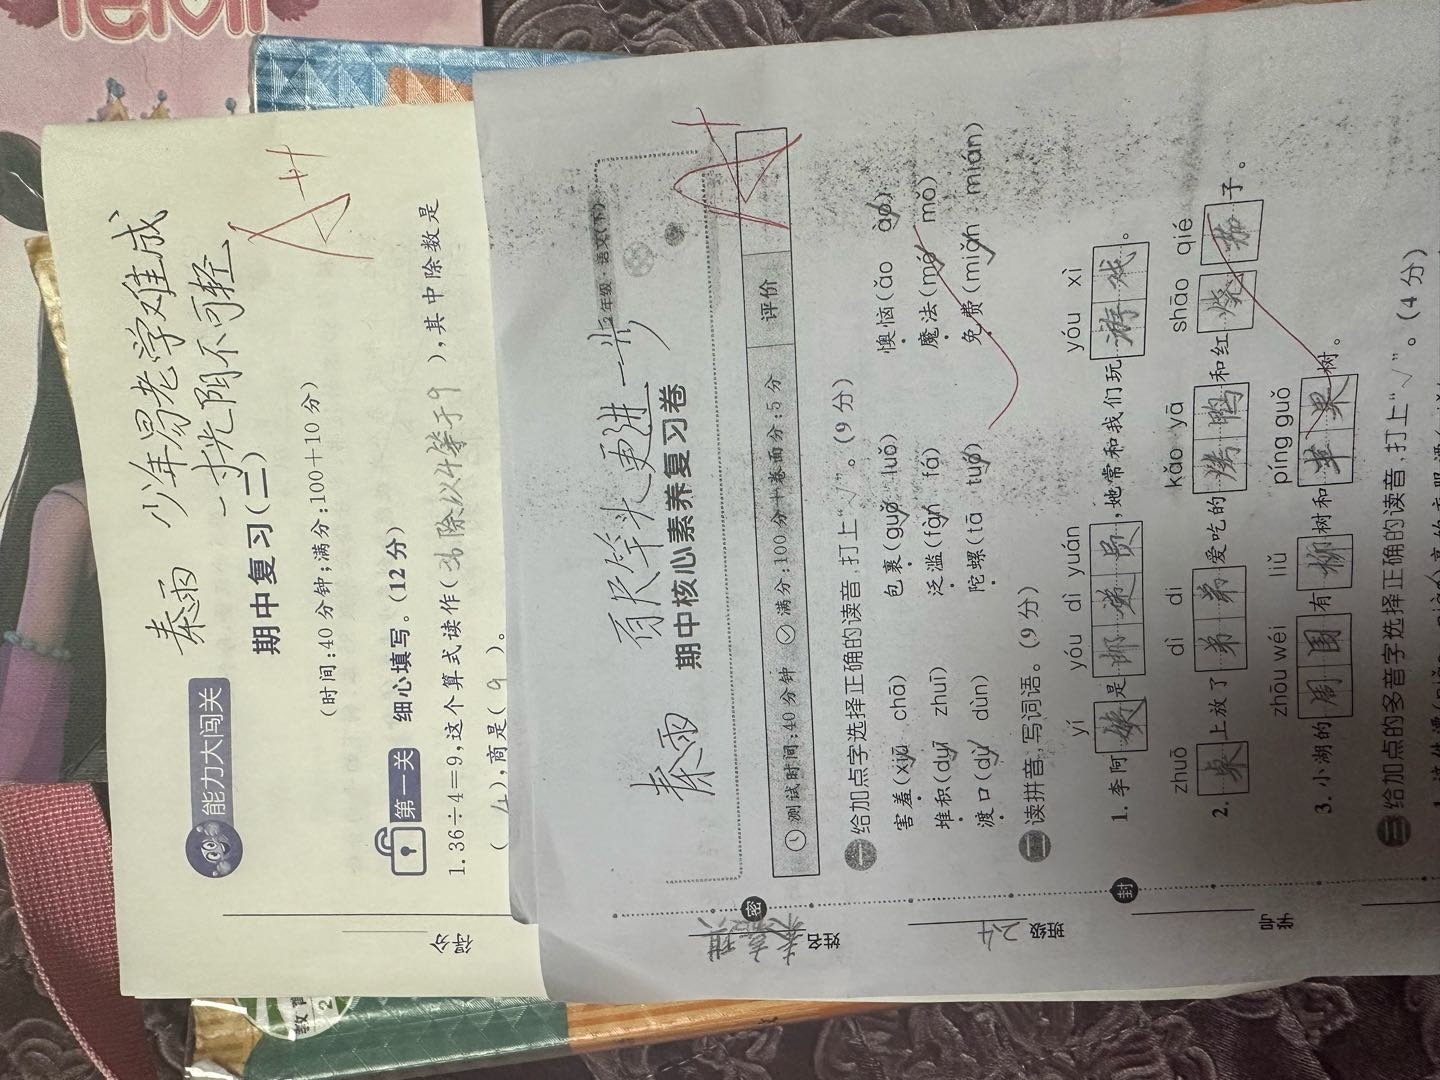 秦雨 少年易老学难成
一寸光阴不可轻
能力大闯关
期中复习(二)
(时间:40分钟;满分:100+10分)
A+
第一关 细心填写。(12分)
1.36÷4=9,这个算式读作(36除以4等于9),其中除数是
(4),商是(9)。
2年级·语文(下)
秦雨 百尺竿头更进一步
期中核心素养复习卷
A+
测试时间:40分钟 满分:100分+卷面分:5分 评价
一 给加点字选择正确的读音,打上“√”。(9分)
害羞(xiū chā) 包裹(guǒ luǒ) 懊恼(ǎo ào)
堆积(duī zhuī) 泛滥(làn fá) 魔法(mó mǒ)
渡口(dù dùn) 陀螺(tā tuó) 免费(miǎn mián)
二 读拼音,写词语。(9分)
yí yóu dì yuán yóu xì
1.李阿姨是邮递员,她常和我们玩游戏。
zhuō dì di kǎo yā shāo qié
2.桌上放了弟弟爱吃的烤鸭和红烧茄子。
zhōu wéi liǔ píng guǒ
3.小湖的周围有柳树和苹果树。
三 给加点的多音字选择正确的读音,打上“√”。(4分)
密
封
姓名
班级 24
学号
教育
2